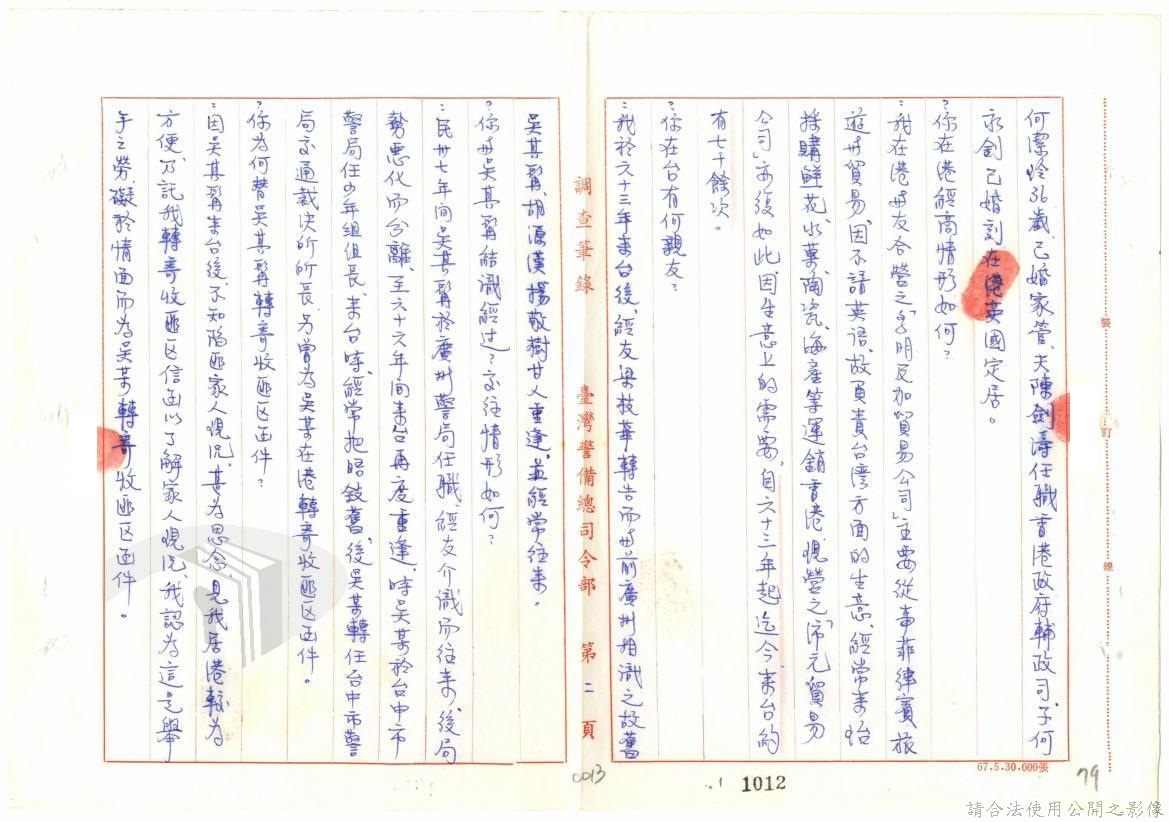 何潔怜36歲、已婚家管、夫陳劍濤任職香港政府輔政司、子何
永釗已婚刻在港英國定居。
?你在港經商情形如何?
:我在港與友合營之「多明尼加貿易公司」主要從事菲律賓旅
遊與貿易、因不諳英語、故負責台灣方面的生意、經常來台
採購鮮花、水菓、陶瓷、海產等運銷香港、現營之「沛元貿易
公司」亦復如此、因生意上的需要、自六十三年起迄今來台約
有七十餘次。
?你在台有何親友?
:我於六十三年來台後、經友梁枝華轉告而與前廣州相識之故舊
調查筆錄 臺灣警備總司令部 第二頁
吳其髯、胡源漢、揚敬樹廿人重逢、並經常往來。
?你與吳其髯結識經過?交往情形如何?
:民卅七年间吳其髯於廣州警局任職、經友介識而往來、後局
勢惡化而分離、至六十六年间來台再度重逢、時吳某於台中市
警局任少年組組長、來台時、經常把晤敍舊、後吳某轉任台中市警
局交通裁決所所長、另曾為吳某在港轉寄收匪区函件。
?你為何替吳其髯轉寄收匪区函件?
:因吳其髯來台後、不知陷匪家人現況、甚為思念、見我居港較為
方便、乃託我轉寄收匪区信函以了解家人現況、我認為這是舉
手之勞、礙於情面而為吳某轉寄收匪区函件。
裝
訂
線
67.5.30.000張
79
0013
1012
請合法使用公開之影像